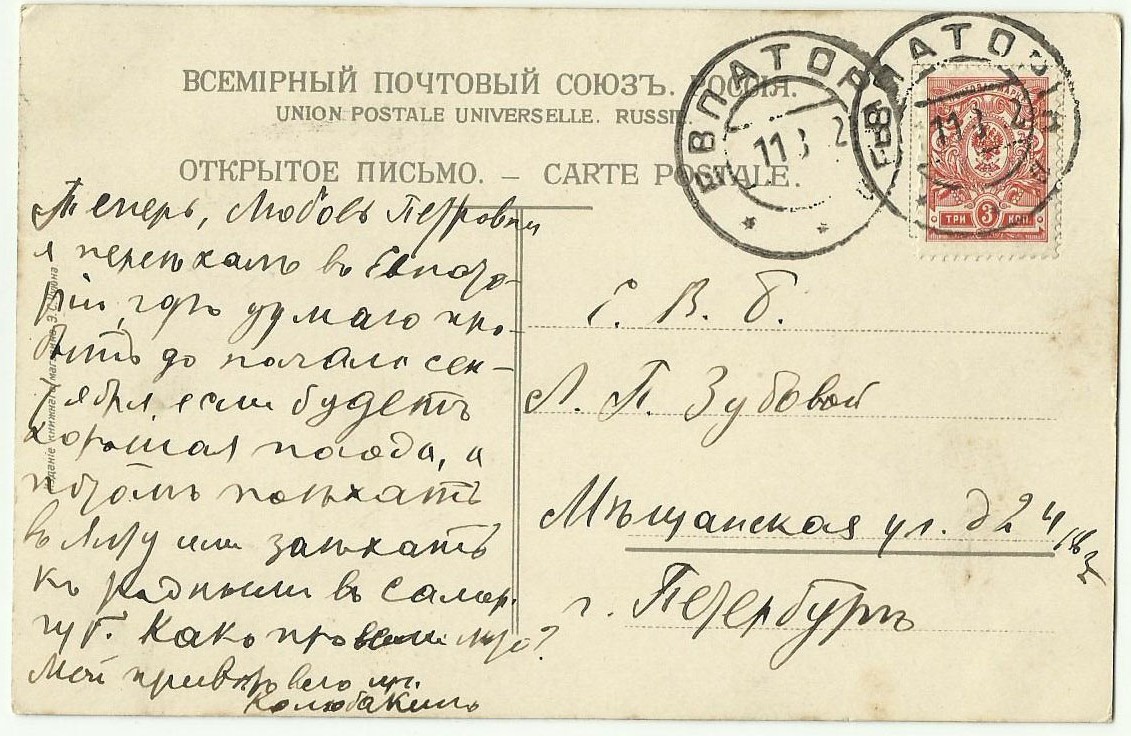 ВСЕМІРНЫЙ ПОЧТОВЫЙ СОЮЗЪ. РОССІЯ.
UNION POSTALE UNIVERSELLE. RUSSIE.
ОТКРЫТОЕ ПИСЬМО. – CARTE POSTALE.
ЕВПАТОРІЯ
11 8 12
ЕВПАТОРІЯ
11 8 12
ТРИ 3 КОП
Изданіе книжнаго магазина Э.
Теперь, Любовь Петровна
я переѣхалъ въ Евпато-
рію, гдѣ думаю про-
быть до начала сен-
тября, если будетъ
хорошая погода, а
потомъ поѣхать
въ Ялту или заѣхать
къ роднымъ въ Самар.
губ. Какъ провели лѣто?
Мой привѣтъ всего
Колюбакинъ
С. П. Б.
Л. П. Зубовой
Мѣщанская ул. д 24
г. Петербургъ